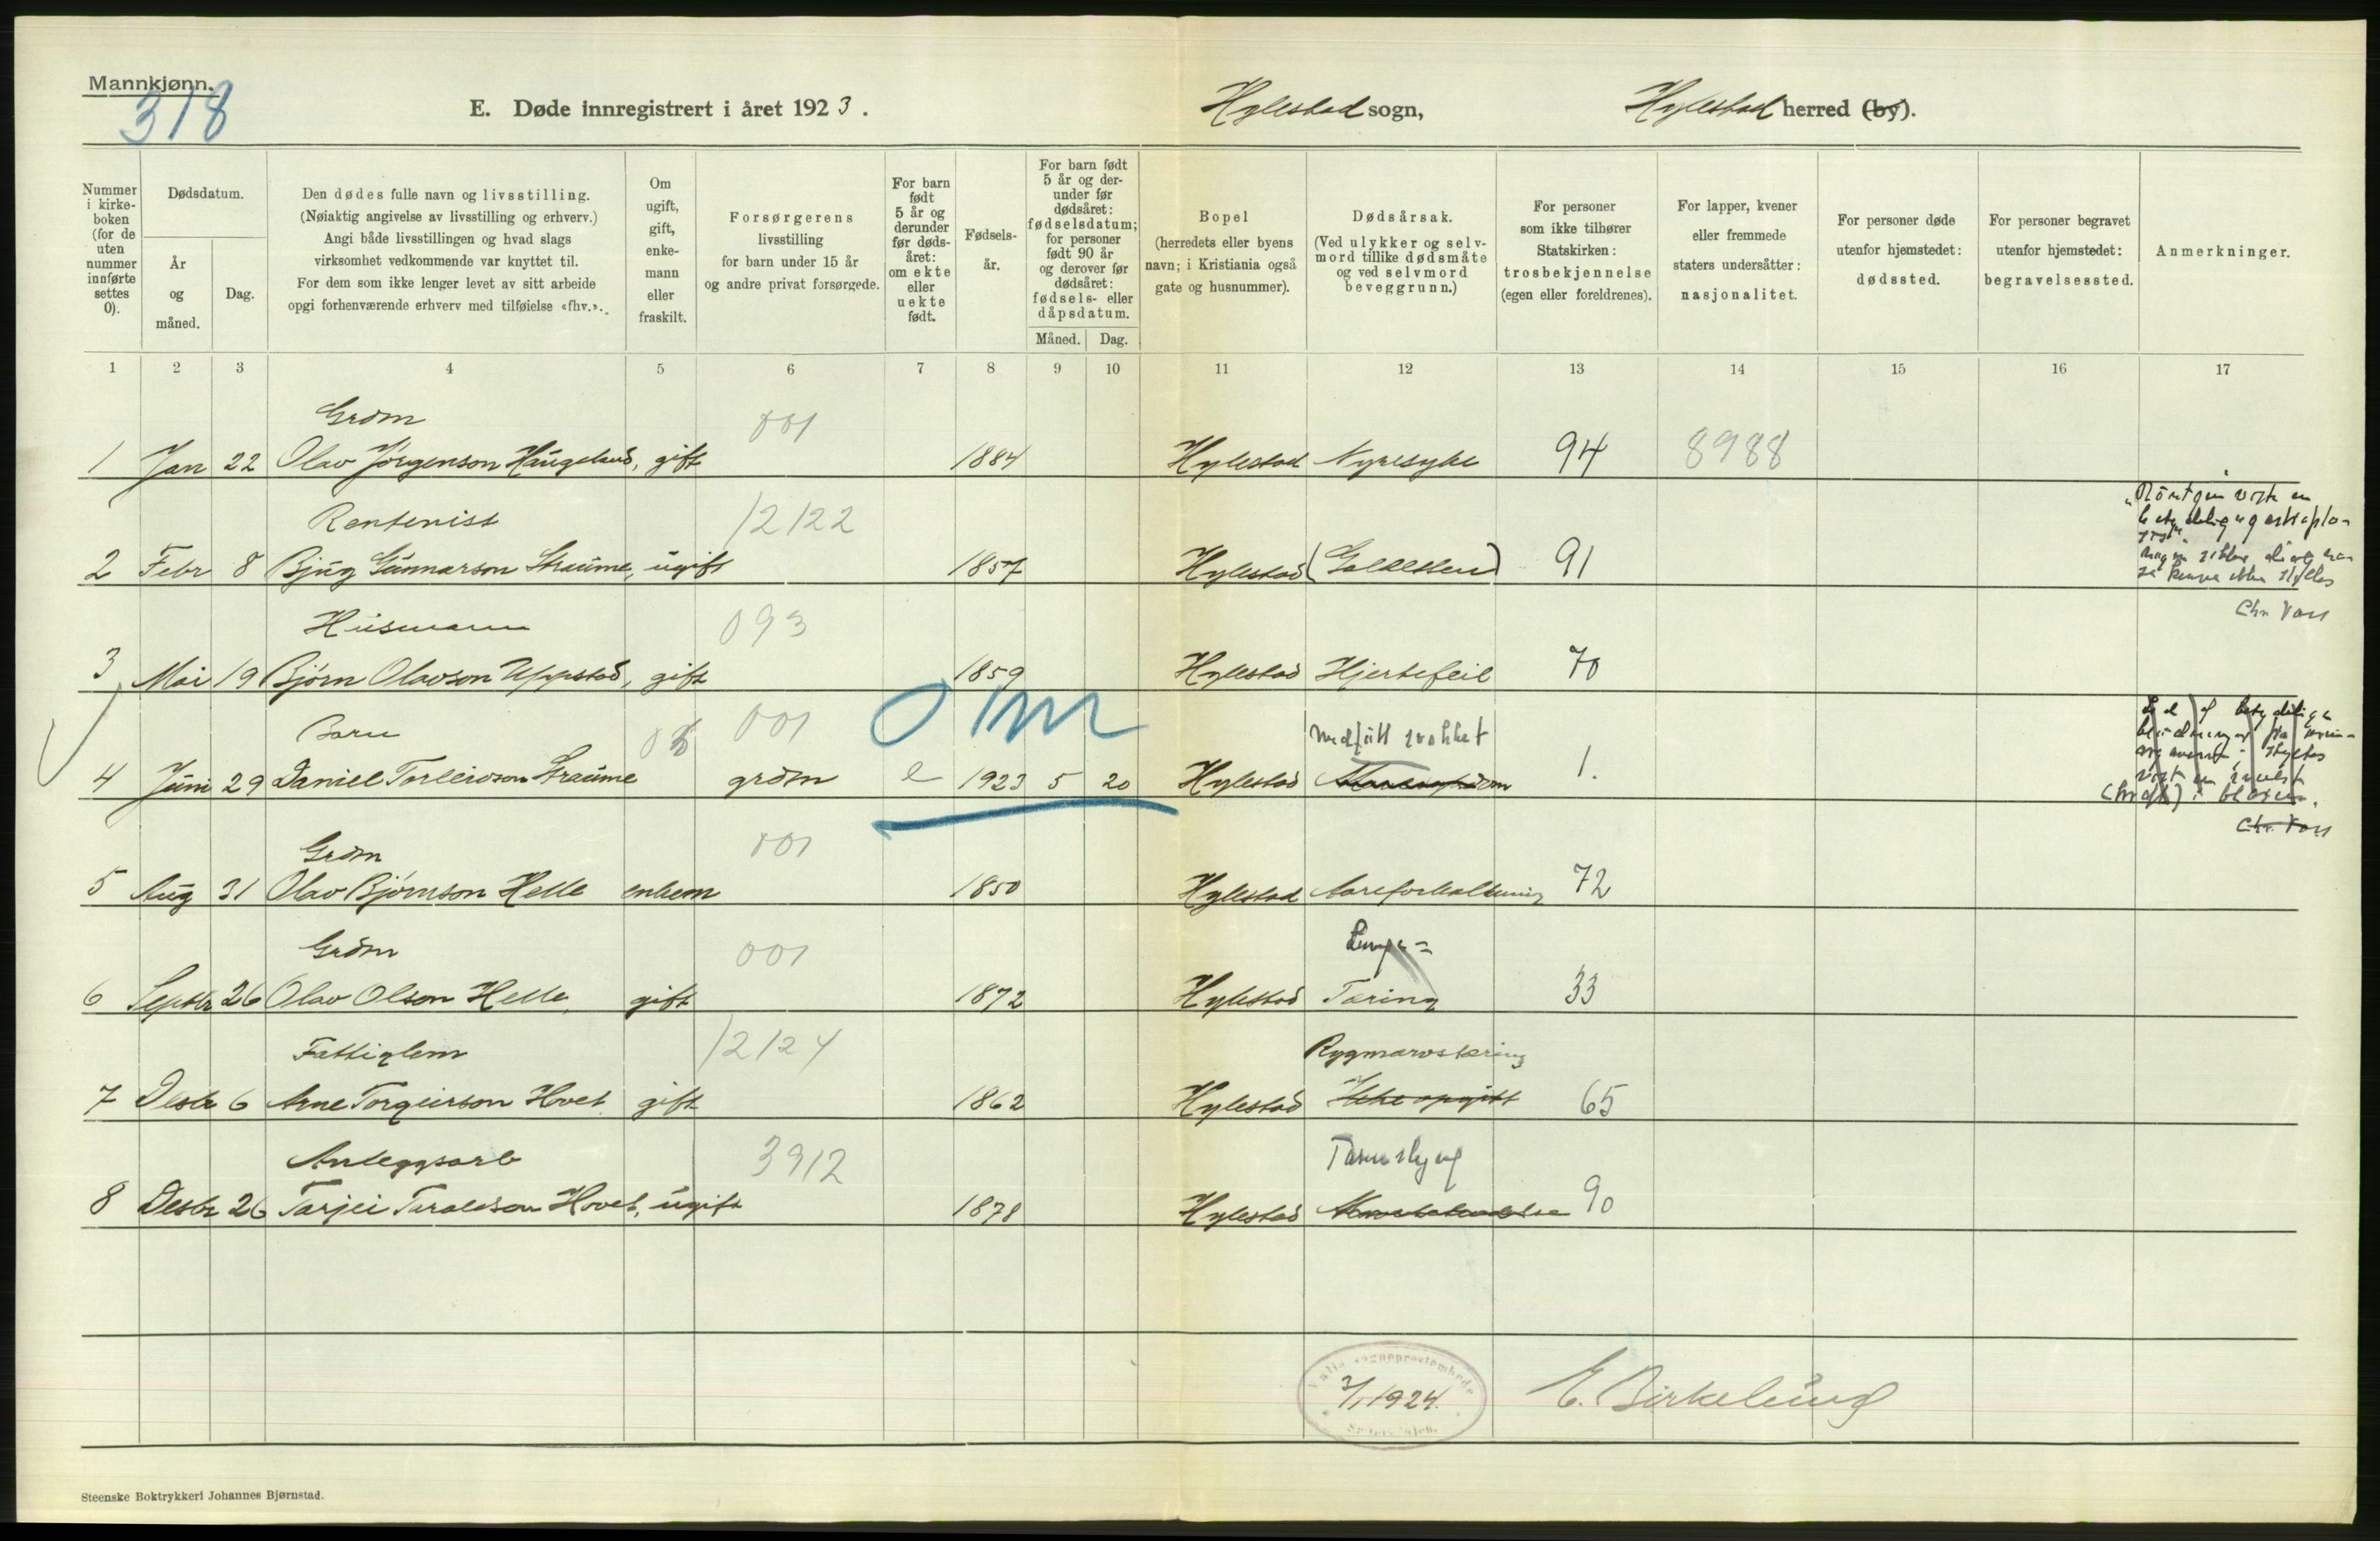 Mannkjønn.
318
E. Døde innregistrert i året 1923. Hylestad sogn, Hylestad herred (by).
Nummer i kirke-boken (for de uten nummer innførte settes 0).
Dødsdatum.
År og måned.
Dag.
Den dødes fulle navn og livsstilling.
(Nøiaktig angivelse av livsstilling og erhverv.)
Angi både livsstillingen og hvad slags
virksomhet vedkommende var knyttet til.
For dem som ikke lenger levet av sitt arbeide
opgi forhenværende erhverv med tilføielse «fhv.».
Om ugift, gift, enke-mann eller fraskilt.
Forsørgerens
livsstilling
for barn under 15 år
og andre privat forsørgede.
For barn født 5 år og derunder før døds-året: om ekte eller uekte født.
Fødsels-år.
For barn født 5 år og der-under før dødsåret: fødselsdatum; for personer født 90 år og derover før dødsåret: fødsels- eller dåpsdatum.
Måned. Dag.
Bopel
(herredets eller byens
navn; i Kristiania også
gate og husnummer).
Dødsårsak.
(Ved ulykker og selv-
mord tillike dødsmåte
og ved selvmord
beveggrunn.)
For personer
som ikke tilhører
Statskirken:
trosbekjennelse
(egen eller foreldrenes).
For lapper, kvener
eller fremmede
staters undersåtter:
nasjonalitet.
For personer døde
utenfor hjemstedet:
dødssted.
For personer begravet
utenfor hjemstedet:
begravelsessted.
Anmerkninger.
1 2 3 4 5 6 7 8 9 10 11 12 13 14 15 16 17
Grdm 001
1 Jan 22 Olav Jörgenson Haugeland, gift 1884 Hylestad Nyresyke 94 8988
Rentenist 12122
2 Febr 8 Bjug Gunnarson Straume, ugift 1857 Hylestad (Galdesten) 91
Chr. Vass
Husmann 093
3 Mai 19 Björn Olavson Uppstad, gift 1859 Hylestad Hjertefeil 70
Barn 001 Om Medfött svakhet
4 Juni 29 Daniel Torleivson Straume grdm e 1923 5 20 Hylestad 1.
Chr. Vass
Grdm 001
5 Aug 31 Olav Björnson Helle enkem 1850 Hylestad Aareforkalkning 72
Grdm 001 Lunge=
6 Septbr 26 Olav Olson Helle, gift 1872 Hylestad Tæring 33
Fattiglem 12124 Rygmarvstæring
7 Desbr 6 Arne Torgeirson Hovet gift 1862 Hylestad Ikke opgitt 65
Anleggsarb 3912
8 Desbr 26 Tarjei Taraldson Hovet, ugift 1878 Hylestad 90
Valle sogneprestembede
3/1 1924.
E. Birkelund
Steenske Boktrykkeri Johannes Bjørnstad.